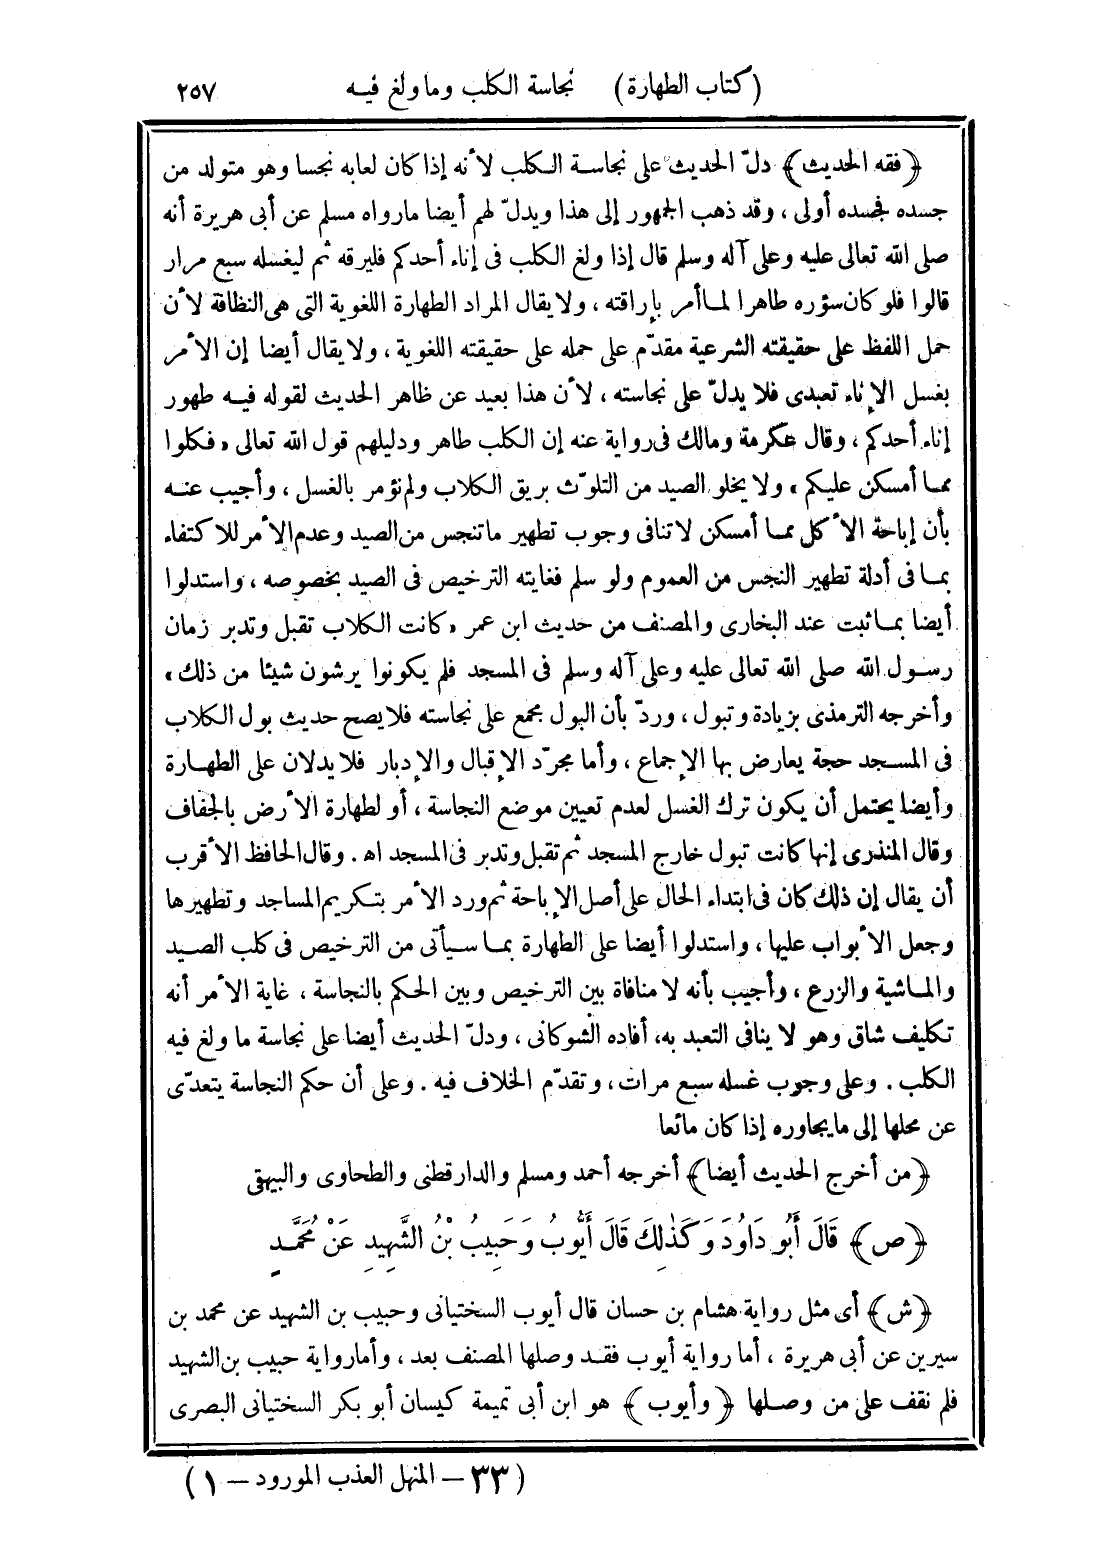 (كتاب الطهارة) نجاسة الكلب وما ولغ فيه ٢٥٧
﴿فقه الحديث﴾ دلّ الحديث على نجاسة الكلب لأنه إذا كان لعابه نجسا وهو متولد من
جسده فجسده أولى ، وقد ذهب الجمهور إلى هذا ويدلّ لهم أيضا مارواه مسلم عن أبى هريرة أنه
صلى الله تعالى عليه وعلى آله وسلم قال إذا ولغ الكلب فى إناء أحدكم فليرقه ثم ليغسله سبع مرار
قالوا فلو كان سؤره طاهرا لما أمر بإراقته ، ولا يقال المراد الطهارة اللغوية التى هى النظافة لأن
حمل اللفظ على حقيقته الشرعية مقدّم على حمله على حقيقته اللغوية ، ولا يقال أيضا إن الأمر
بغسل الإناء تعبدى فلا يدلّ على نجاسته ، لأن هذا بعيد عن ظاهر الحديث لقوله فيه طهور
إناء أحدكم ، وقال عكرمة ومالك فى رواية عنه إن الكلب طاهر ودليلهم قول الله تعالى «فكلوا
مما أمسكن عليكم» ولا يخلو الصيد من التلوّث بريق الكلاب ولم نؤمر بالغسل ، وأجيب عنه
بأن إباحة الأكل مما أمسكن لا تنافى وجوب تطهير ما تنجس من الصيد وعدم الأمر للاكتفاء
بما فى أدلة تطهير النجس من العموم ولو سلم فغايته الترخيص فى الصيد بخصوصه ، واستدلوا
أيضا بما ثبت عند البخارى والمصنف من حديث ابن عمر «كانت الكلاب تقبل وتدبر زمان
رسول الله صلى الله تعالى عليه وعلى آله وسلم فى المسجد فلم يكونوا يرشون شيئا من ذلك»
وأخرجه الترمذى بزيادة وتبول ، وردّ بأن البول مجمع على نجاسته فلا يصح حديث بول الكلاب
فى المسجد حجة يعارض بها الإجماع ، وأما مجرّد الإقبال والإدبار فلا يدلان على الطهارة
وأيضا يحتمل أن يكون ترك الغسل لعدم تعيين موضع النجاسة ، أو لطهارة الأرض بالجفاف
وقال المنذرى إنها كانت تبول خارج المسجد ثم تقبل وتدبر فى المسجد اه . وقال الحافظ الأقرب
أن يقال إن ذلك كان فى ابتداء الحال على أصل الإباحة ثم ورد الأمر بتكريم المساجد وتطهيرها
وجعل الأبواب عليها ، واستدلوا أيضا على الطهارة بما سيأتى من الترخيص فى كلب الصيد
والماشية والزرع ، وأجيب بأنه لا منافاة بين الترخيص وبين الحكم بالنجاسة ، غاية الأمر أنه
تكليف شاق وهو لا ينافى التعبد به، أفاده الشوكانى ، ودلّ الحديث أيضا على نجاسة ما ولغ فيه
الكلب . وعلى وجوب غسله سبع مرات ، وتقدّم الخلاف فيه . وعلى أن حكم النجاسة يتعدّى
عن محلها إلى ما يجاوره إذا كان مائعا
﴿من أخرج الحديث أيضا﴾ أخرجه أحمد ومسلم والدارقطنى والطحاوى والبيهقى
﴿ص﴾ قَالَ أَبُو دَاوُدَ وَكَذَلِكَ قَالَ أَيُّوبُ وَحَبِيبُ بْنُ الشَّهِيدِ عَنْ مُحَمَّدٍ
﴿ش﴾ أى مثل رواية هشام بن حسان قال أيوب السختيانى وحبيب بن الشهيد عن محمد بن
سيرين عن أبى هريرة ، أما رواية أيوب فقد وصلها المصنف بعد ، وأما رواية حبيب بن الشهيد
فلم نقف على من وصلها ﴿وأيوب﴾ هو ابن أبى تميمة كيسان أبو بكر السختيانى البصرى
(٣٣ – المنهل العذب المورود – ١)